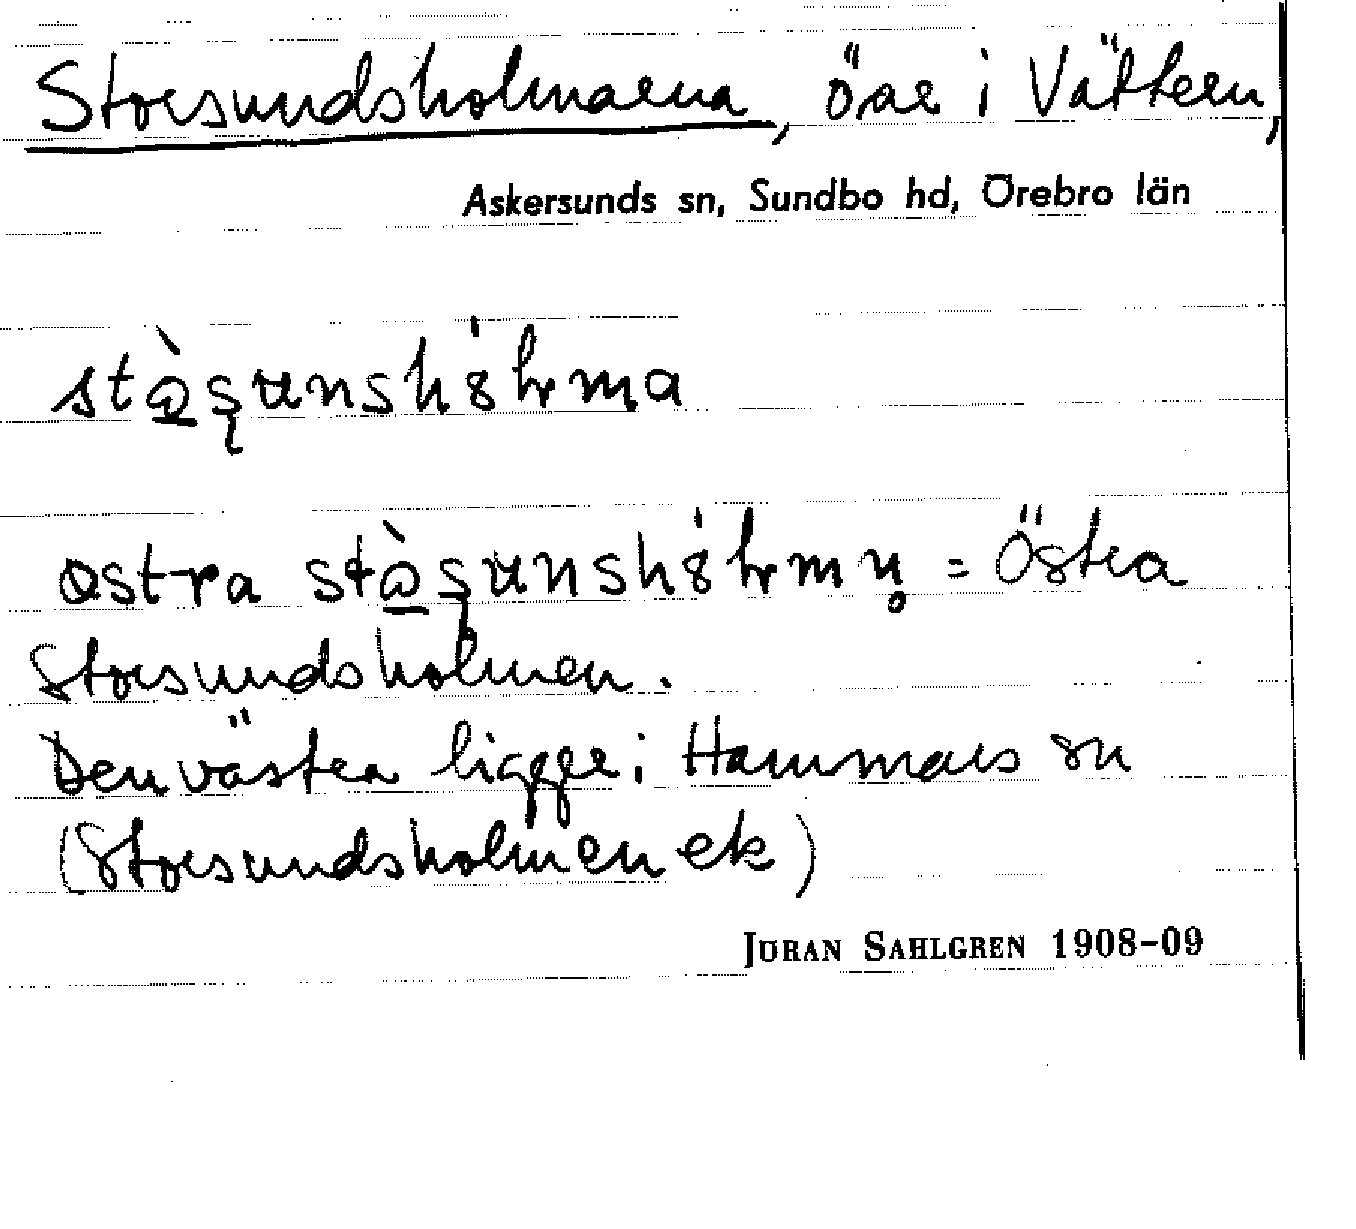 Storsundsholmarna, öar i Vättern,
Askersunds sn, Sundbo hd, Örebro län
Östra
Storsundsholmen.
Den västra ligger i Hammars sn
(Storsundsholmen ek)
JÖRAN SAHLGREN 1908-09